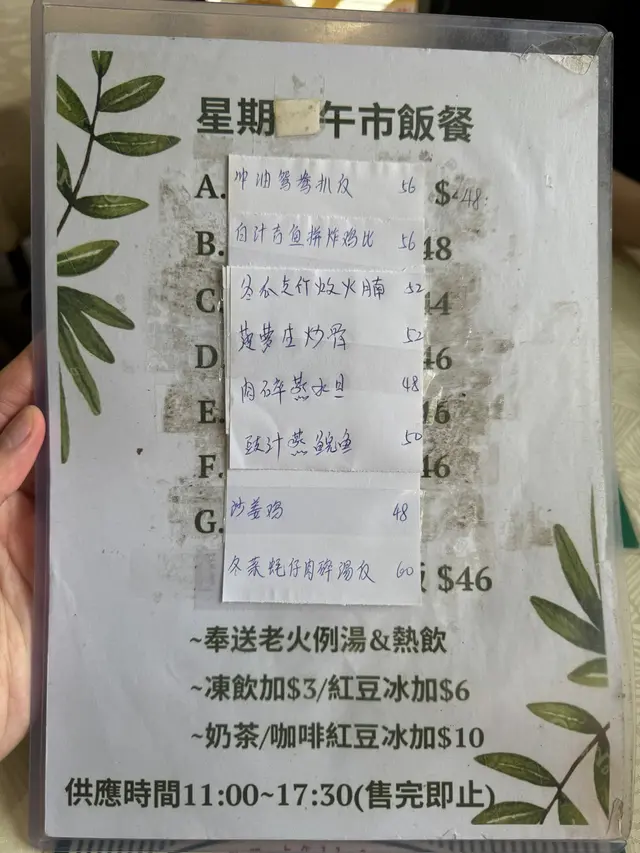 星期 午市飯餐
A. 沖油鴛鴦扒反 56 $48
B. 白汁吉鱼拼炸鸡比 56 48
C. 冬瓜支竹炆火腩 52 44
D. 菠萝生炒骨 52 46
E. 肉碎蒸水旦 48 46
F. 豉汁蒸鲩鱼 50 46
G. 沙姜鸡 48
冬菜蚝仔肉碎湯反 60 $46
~奉送老火例湯&熱飲
~凍飲加$3/紅豆冰加$6
~奶茶/咖啡紅豆冰加$10
供應時間11:00~17:30(售完即止)